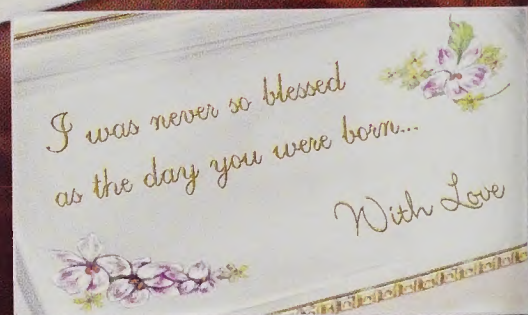 I was never so blessed
as the day you were born...
With Love